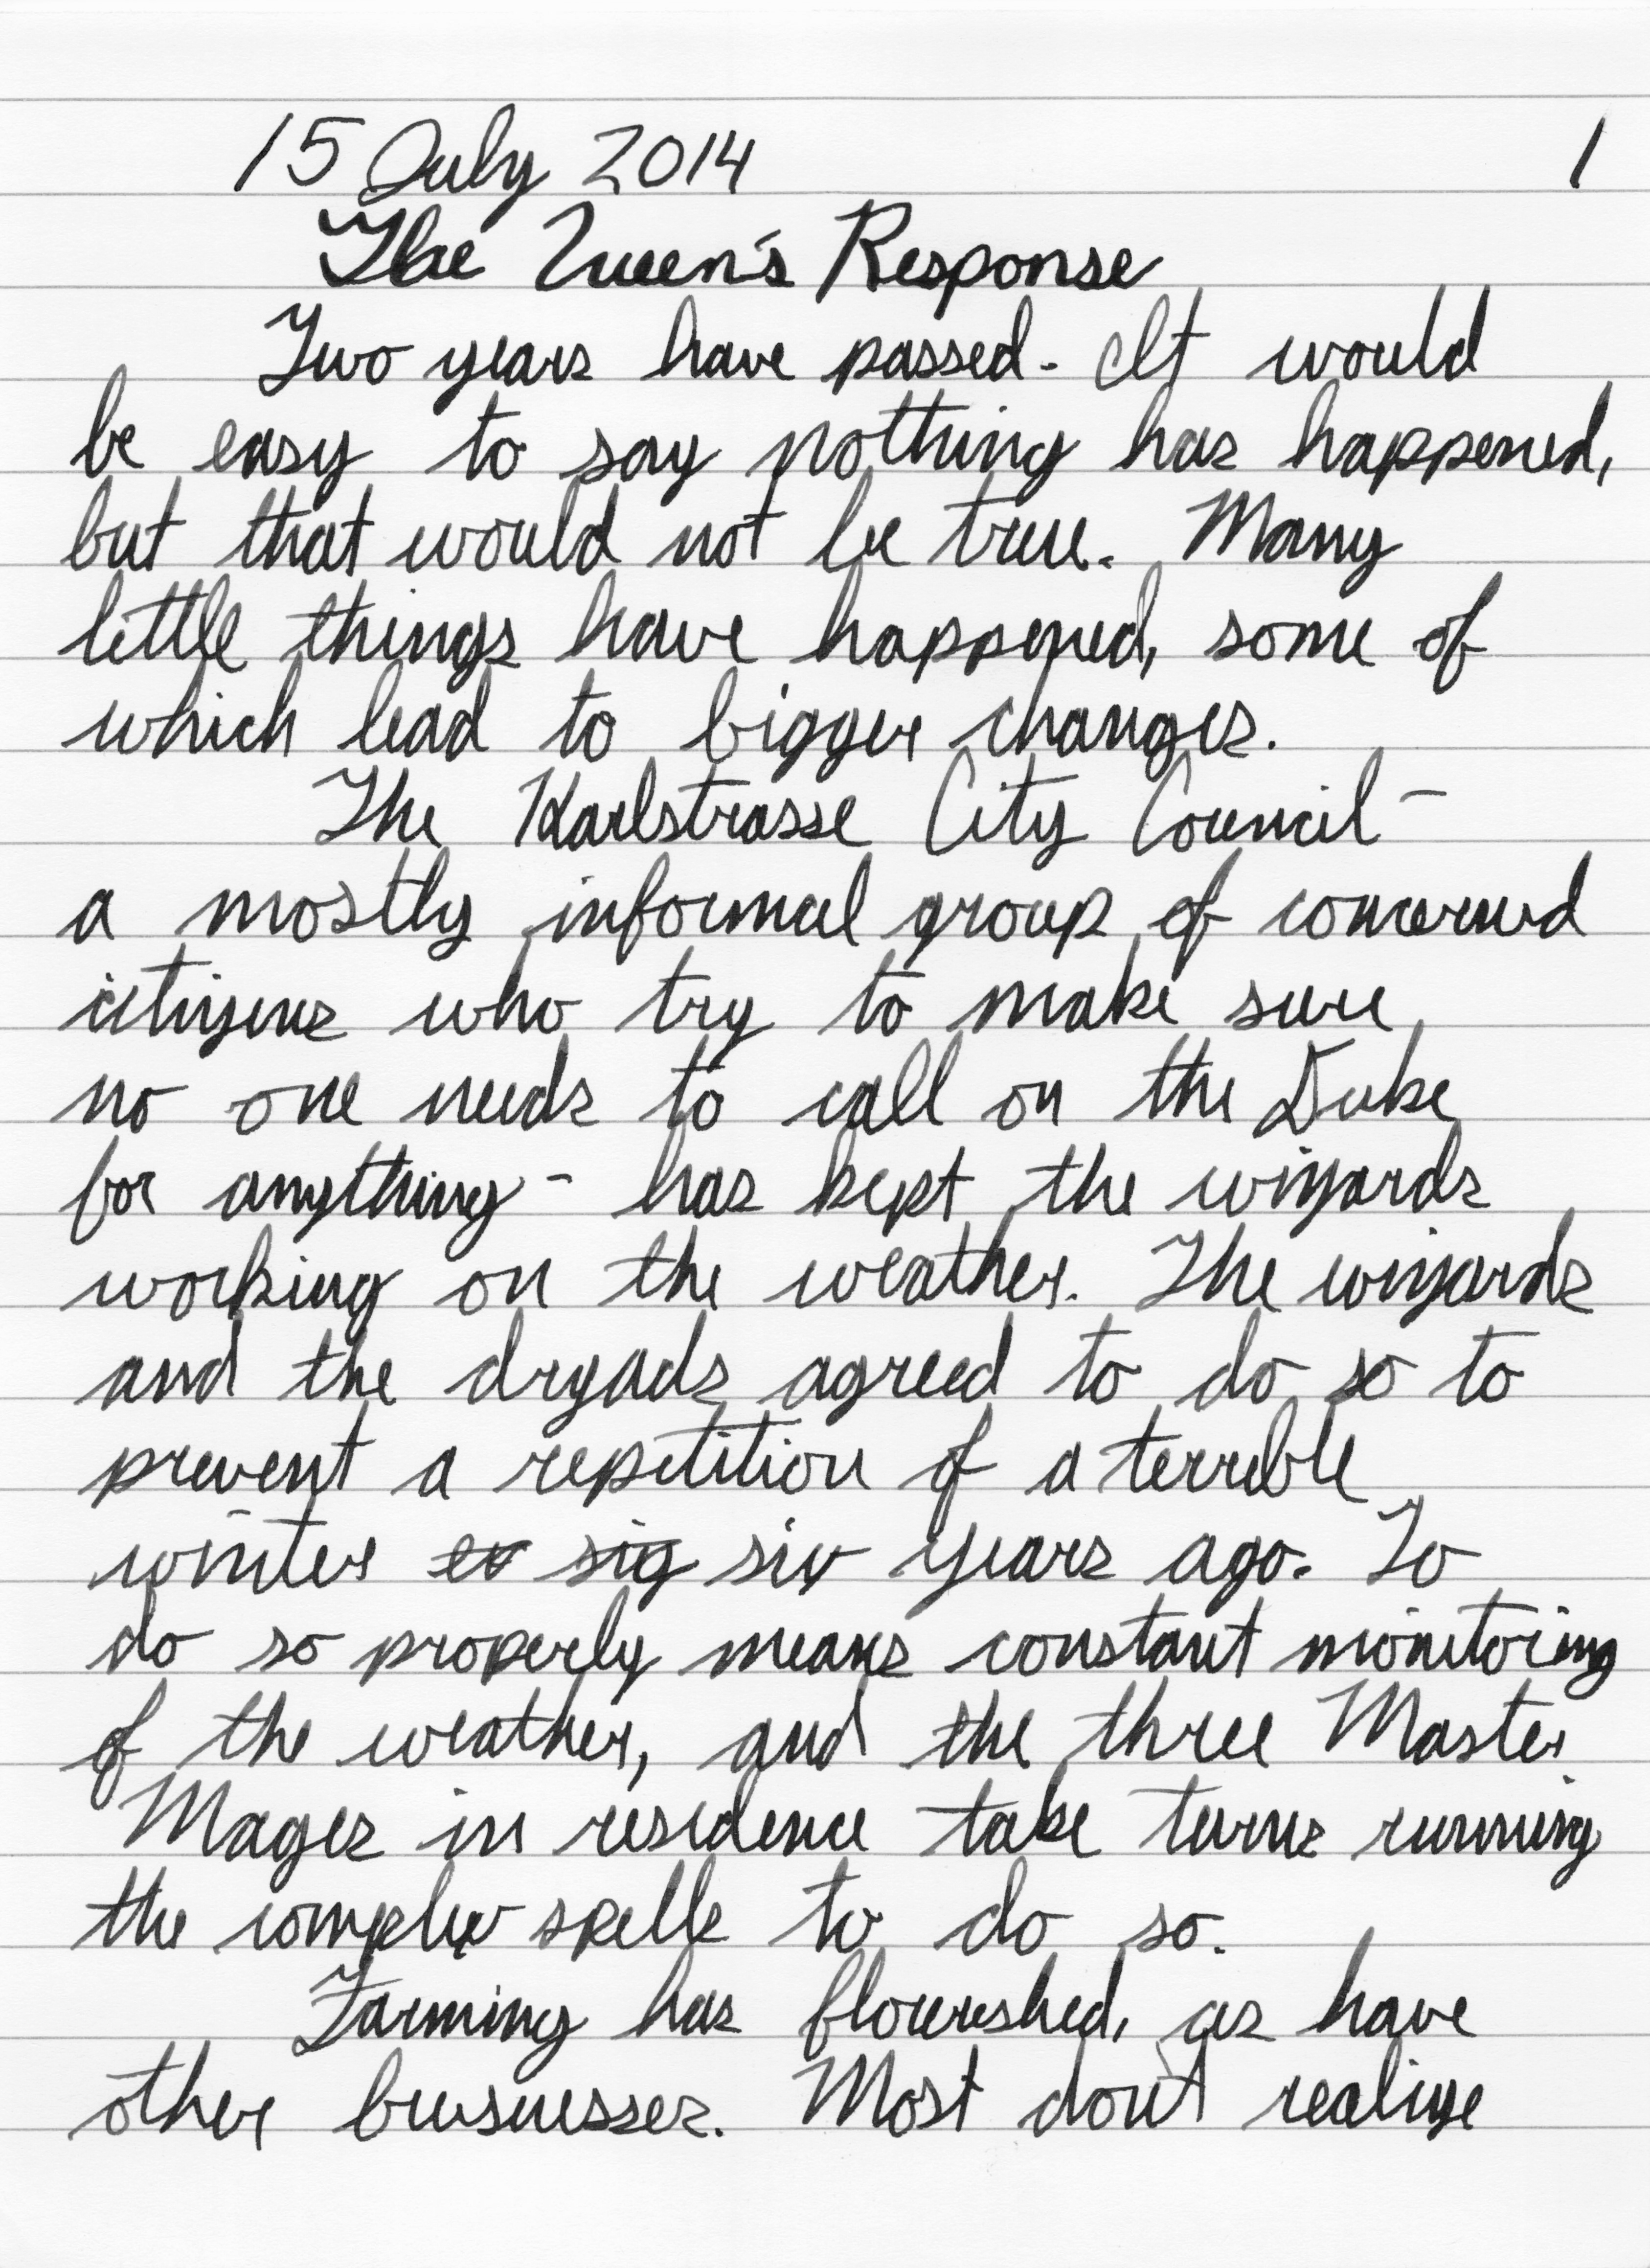 15 July 2014 1
The Queen's Response
Two years have passed. It would
be easy to say nothing has happened,
but that would not be true. Many
little things have happened, some of
which lead to bigger changes.
The Karlstrasse City Council -
a mostly informal group of concerned
citizens who try to make sure
no one needs to call on the Duke
for anything - has kept the wizards
working on the weather. The wizards
and the dryads agreed to do so to
prevent a repetition of a terrible
winter ex sig six years ago. To
do so properly means constant monitoring
of the weather, and the three Master
Mages in residence take turns running
the complex spells to do so.
Farming has flourished, as have
other businesses. Most don't realize